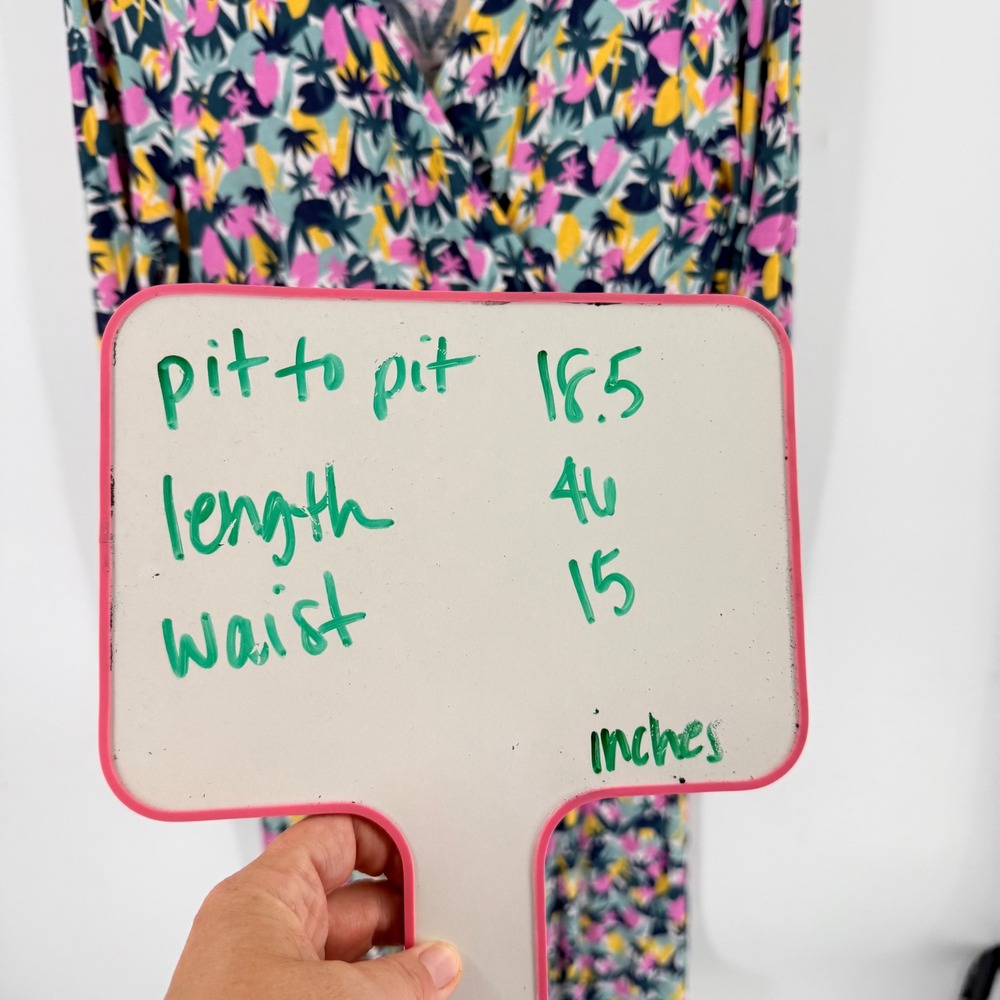 pit to pit 18.5
length 46
waist 15
inches